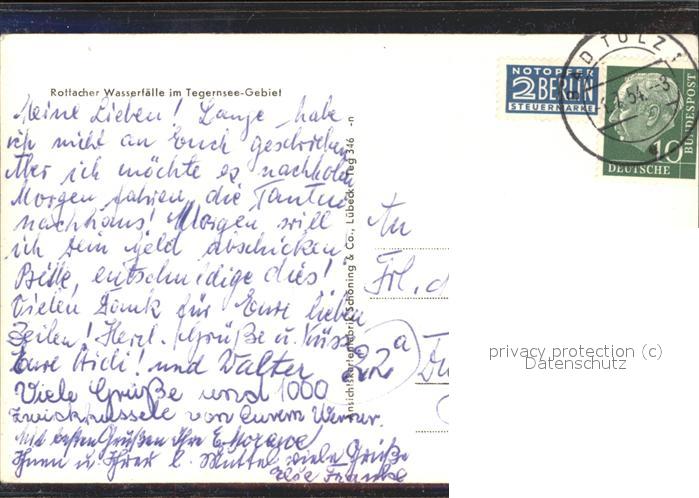 Rottacher Wasserfälle im Tegernsee-Gebiet
NOTOPFER
2 BERLIN
STEUERMARKE
BAD TÖLZ 1
.54.-8
10
DEUTSCHE
BUNDESPOST
Meine Lieben! Lange habe
ich nicht an Euch geschrieben
Aber ich möchte es nachholen
Morgen fahren, die Tanten
nachhaus! Morgen will
ich dein Geld abschicken
Bitte, entschuldige dies!
Vielen Dank für Eure lieben
Zeilen! Herzl. Grüße u. Küsse
Eure Heidi! und Walter
Viele Grüße und 1000
von Eurem Werner.
Mit besten Grüßen Ihre
Ihnen u. Ihrer l. Mutter viele Grüße
Ilse Franke
Ansichtskartenfabrik Schöning & Co., Lübeck Teg 346 -n
An
Frl.
22a
privacy protection (c)
Datenschutz